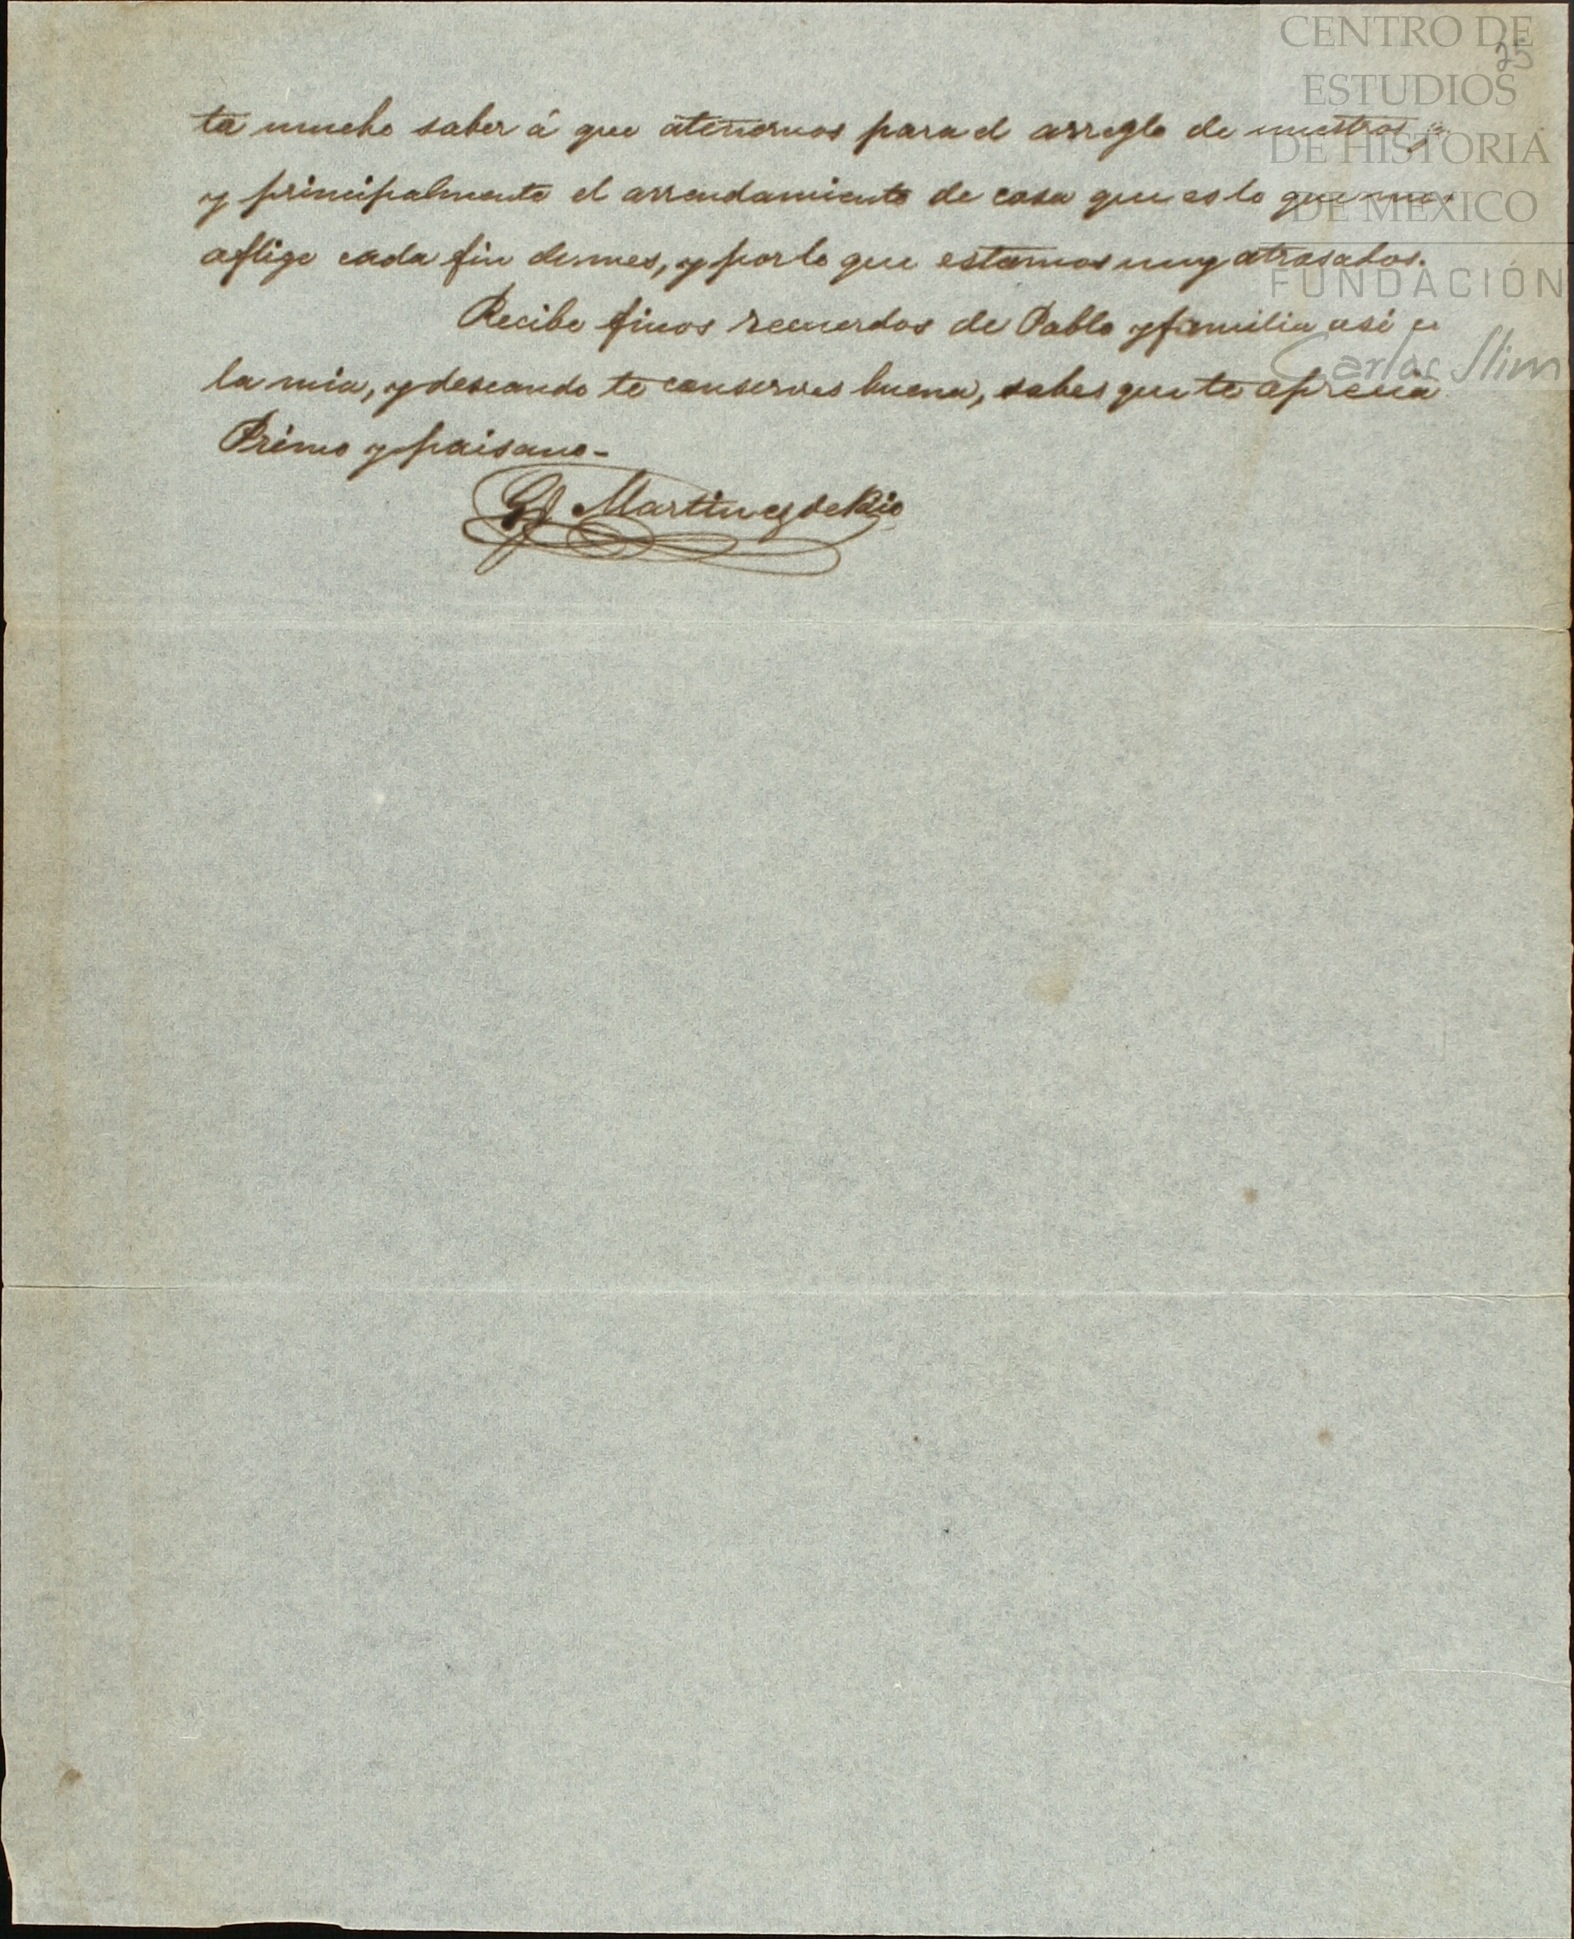 CENTRO DE
ESTUDIOS
DE HISTORIA
DE MÉXICO
FUNDACIÓN
Carlos Slim
25
ta mucho saber á que atenernos para el arreglo de nuestros
y principalmente el arrendamiento de casa que es lo que mas
aflige cada fin de mes, y por lo que estamos muy atrasados.
Recibe finos recuerdos de Pablo y familia asi
la mia, y deseando te conserves buena, sabes que te aprecia
Primo y paisano-
G Martinez del Rio